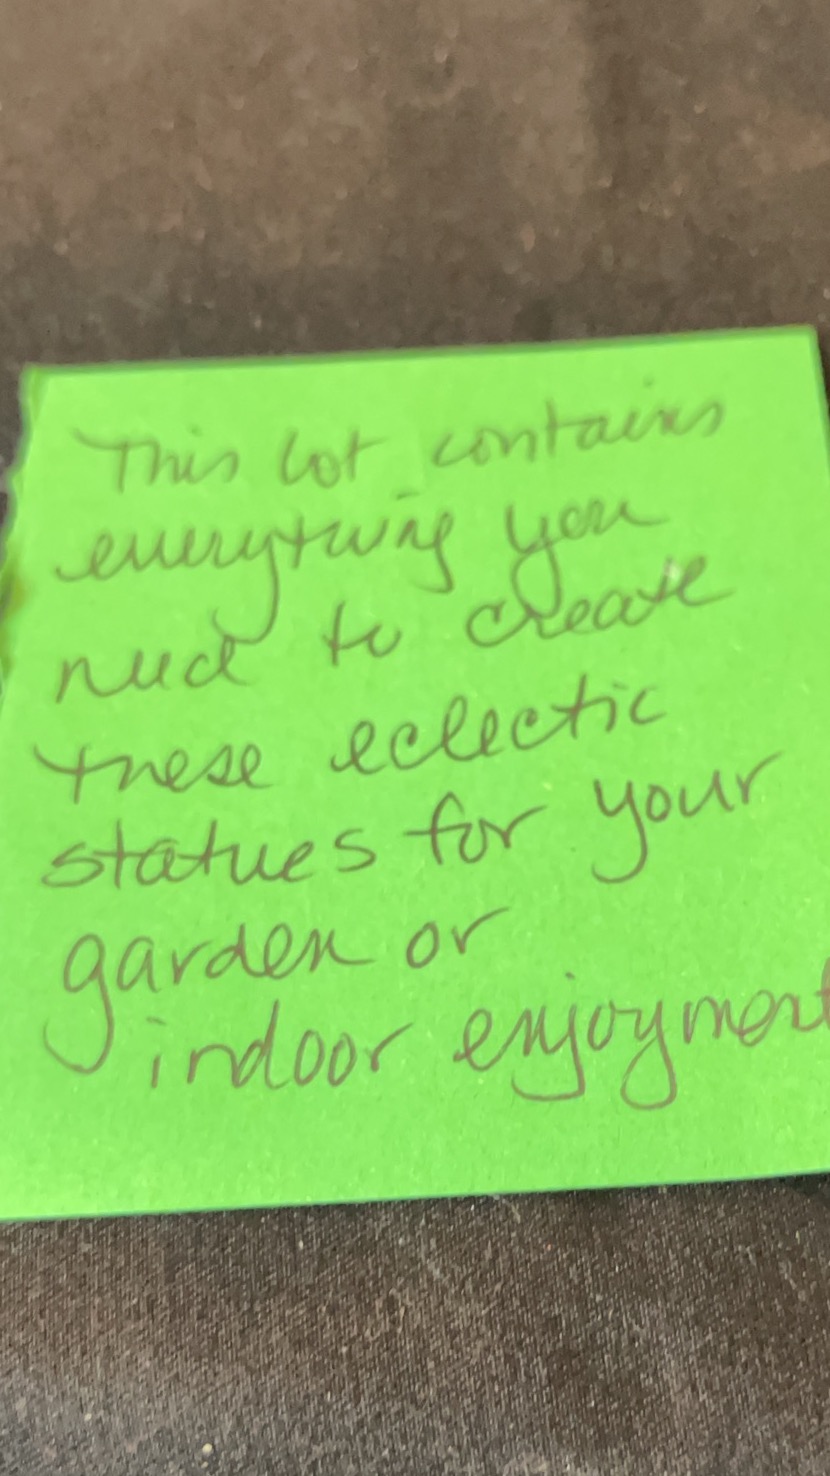 This lot contains
everything you
need to create
these eclectic
statues for your
garden or
indoor enjoyment